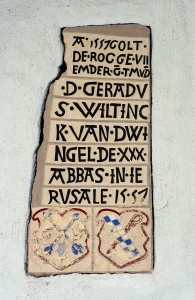 A · 1557 GOLT ·
DE · ROGGE · VII
EMDER · G̅ · TMVD
· D · GERADV
S · WILTINC
K · VAN · DWI
NGEL · DE · XXX ·
ABBAS · IN · HE
RUSALE · 1557